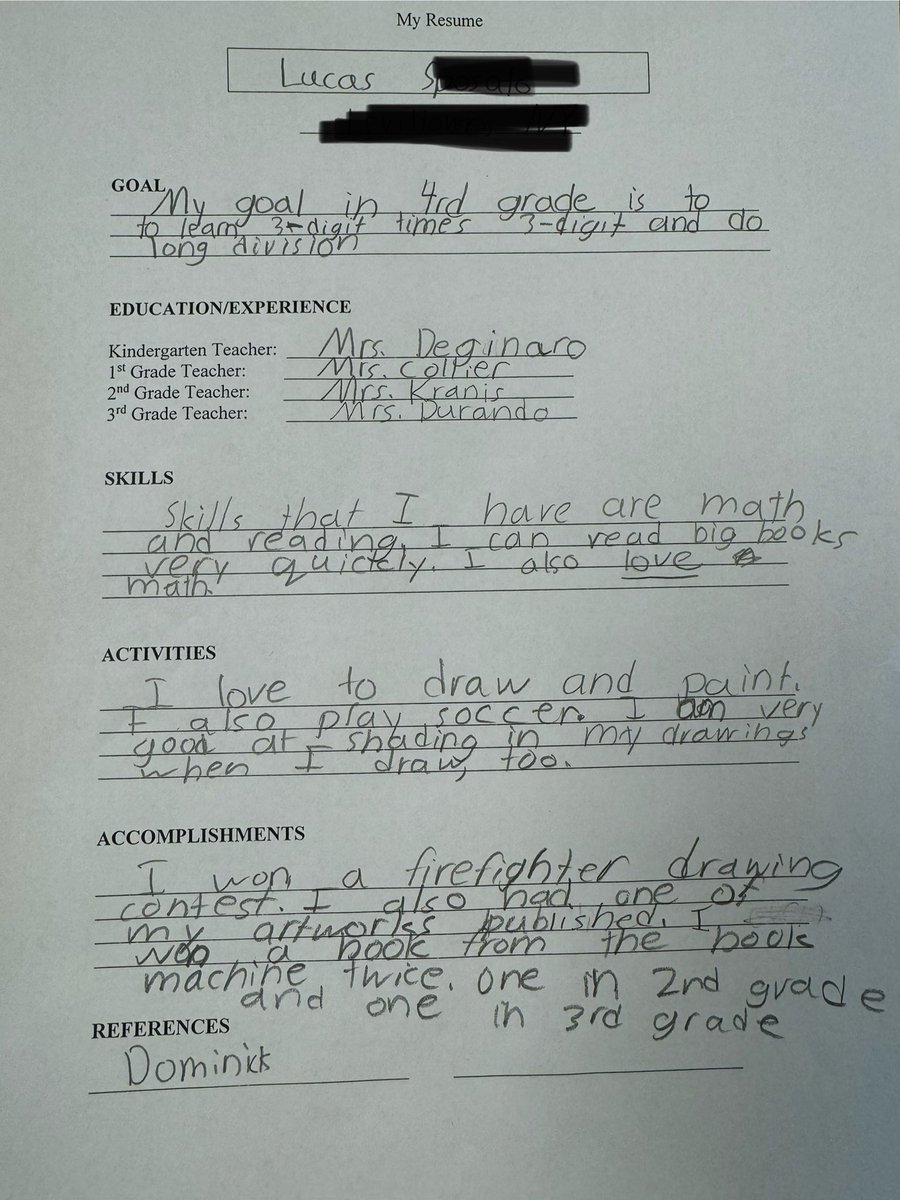 My Resume
Lucas
GOAL
My goal in 4rd grade is to
to learn 3-digit times 3-digit and do
long division
EDUCATION/EXPERIENCE
Kindergarten Teacher: Mrs. Deginaro
1st Grade Teacher: Mrs. Collier
2nd Grade Teacher: Mrs. Kranis
3rd Grade Teacher: Mrs. Durando
SKILLS
Skills that I have are math
and reading. I can read big books
very quickly. I also love
math.
ACTIVITIES
I love to draw and paint.
I also play soccer. I am very
good at shading in my drawings
when I draw, too.
ACCOMPLISHMENTS
I won a firefighter drawing
contest. I also had one of
my artworks published. I
won a book from the book
machine twice. one in 2nd grade
and one in 3rd grade
REFERENCES
Dominick